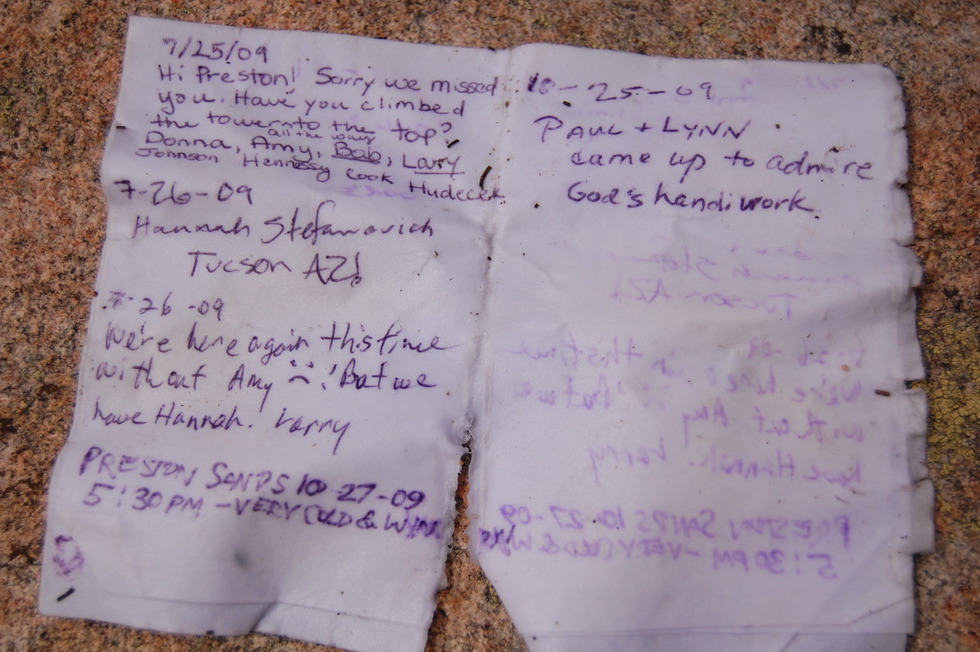 7/25/09
Hi Preston! Sorry we missed
you. Have you climbed
the tower to the top?
all the way
Donna, Amy, Bob, Larry
Johnson Hennessy Cook Hudecek
7-26-09
Hannah Stefanovich
Tucson AZ!
7-26-09
We're here again this time
without Amy ☹! But we
have Hannah. Larry
PRESTON SANDS 10-27-09
5:30 PM - VERY COLD &
10-25-09
PAUL + LYNN
came up to admire
God's handiwork.